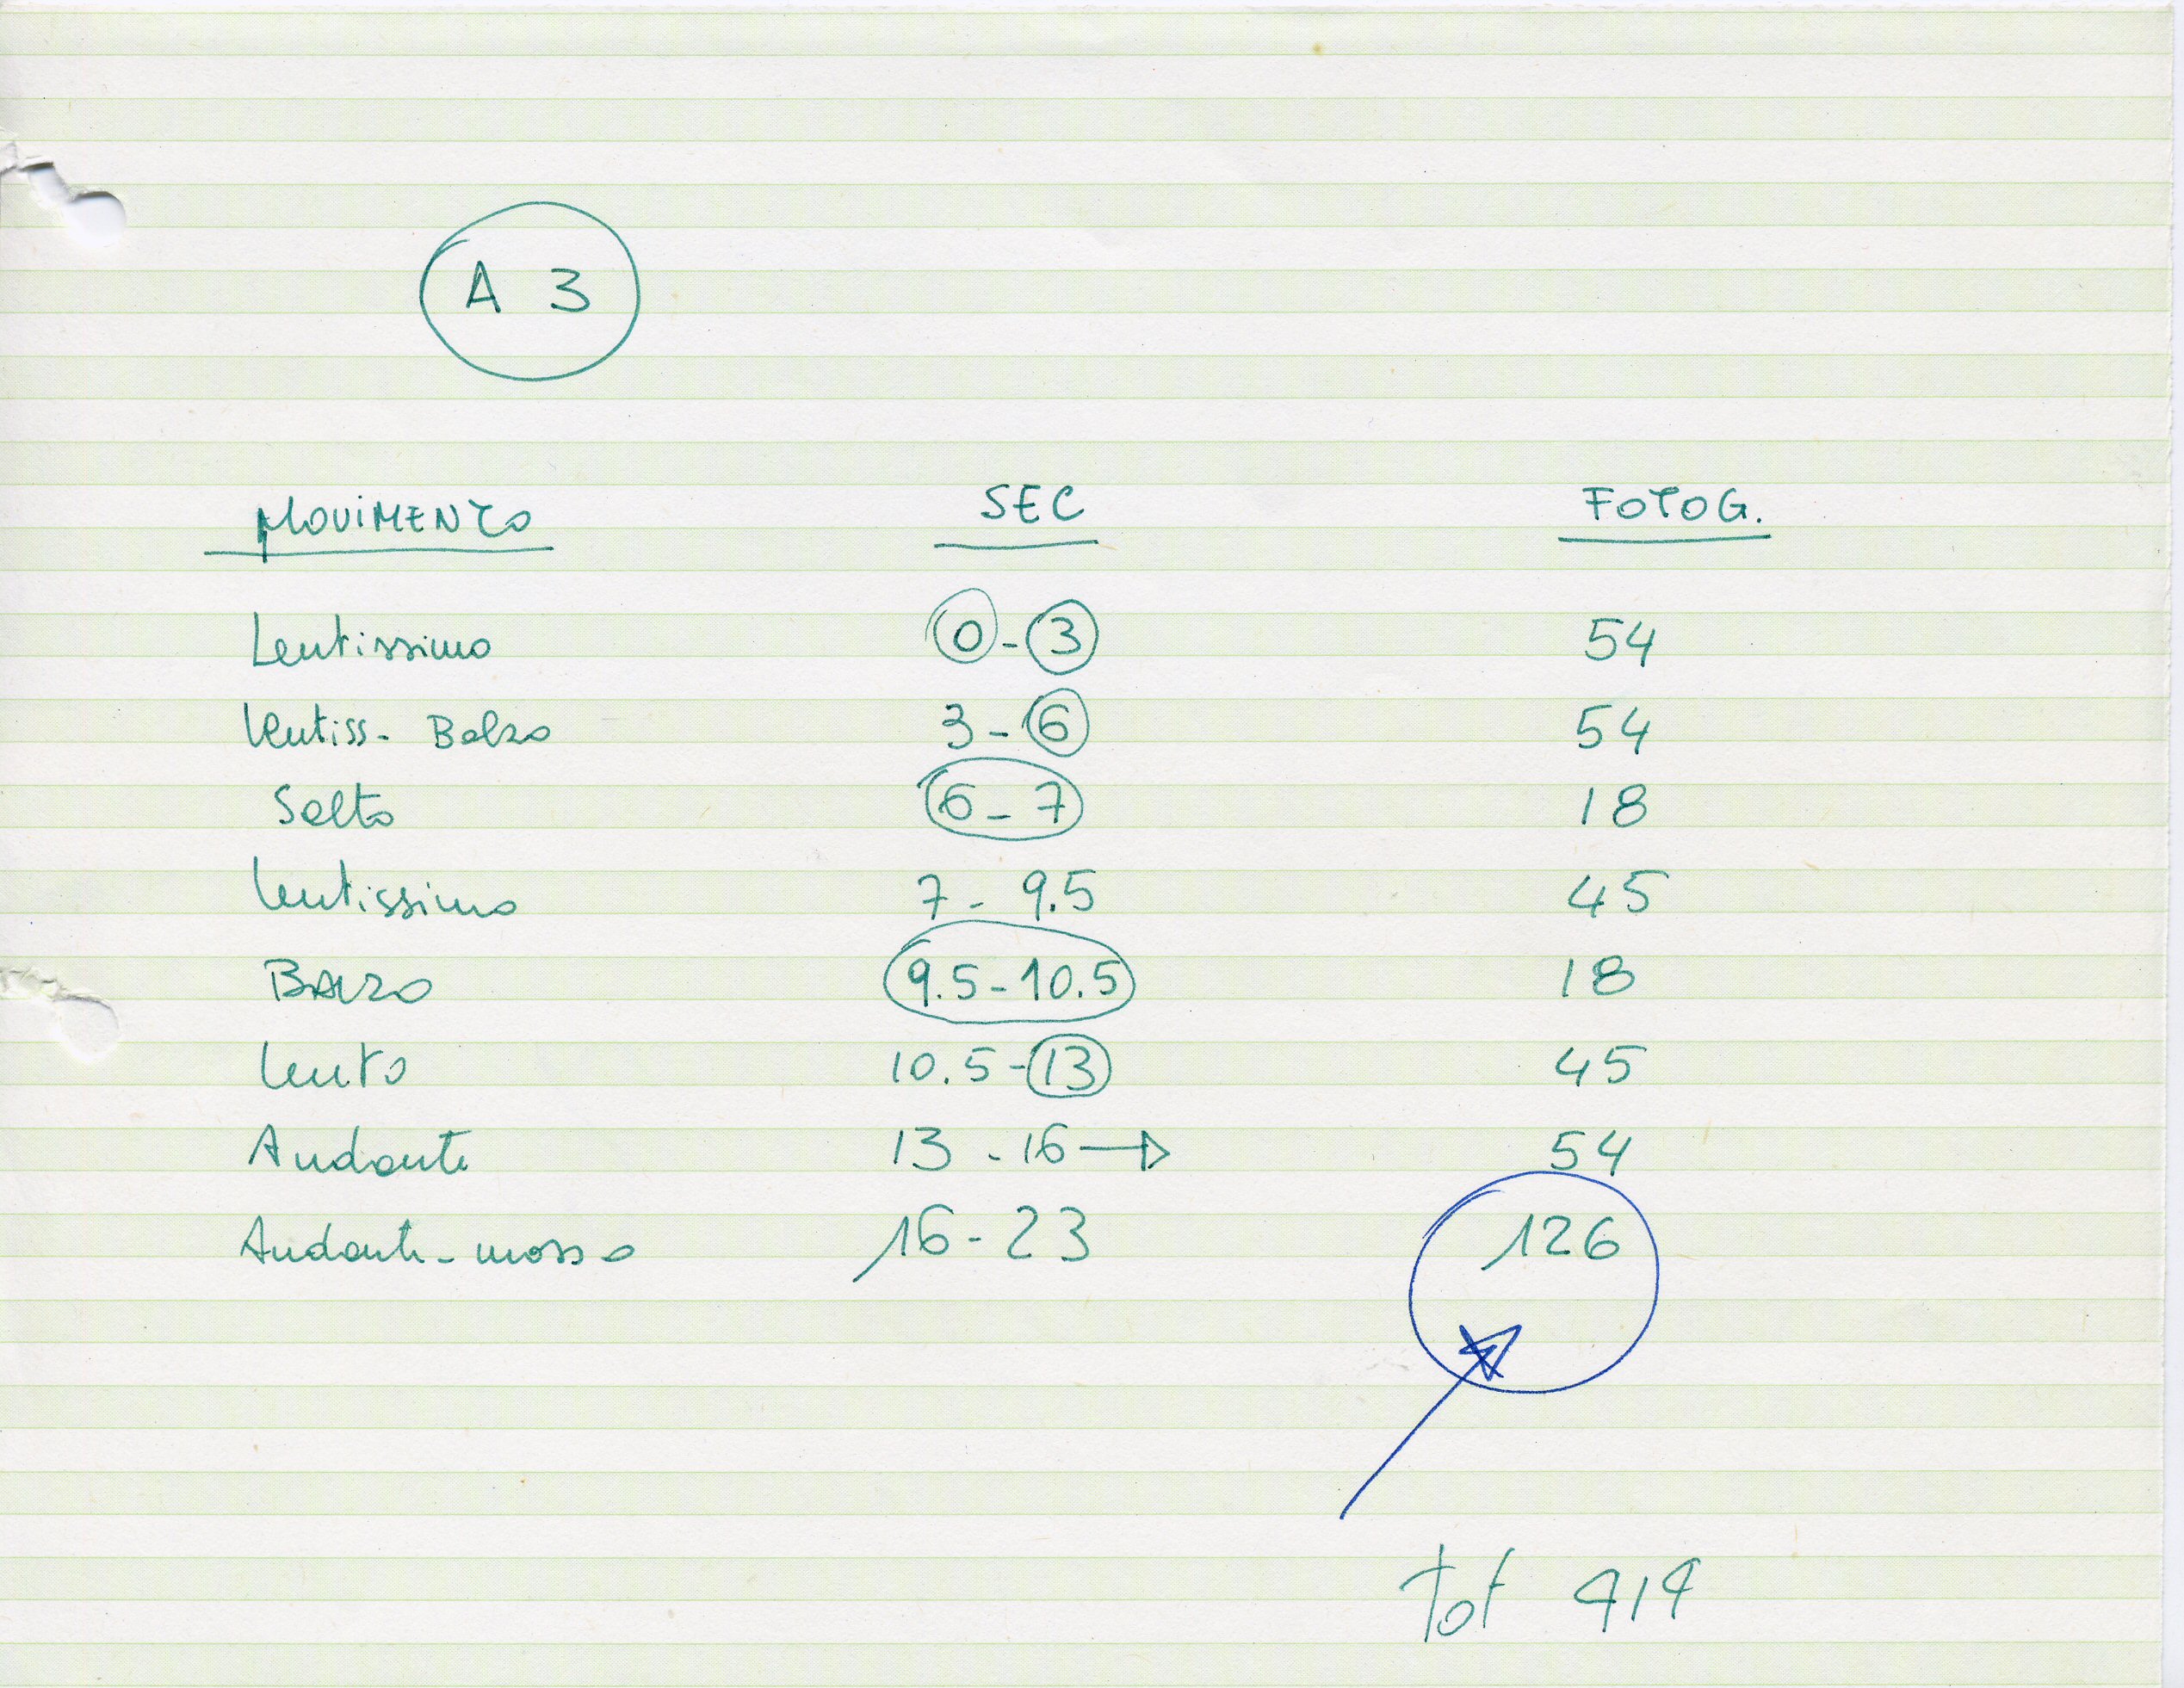 A 3
MOVIMENTO SEC FOTOG.
Lentissimo 0-3 54
Lentiss- Balzo 3-6 54
Salto 6-7 18
Lentissimo 7-9.5 45
BALZO 9.5-10.5 18
Lento 10.5-13 45
Andante 13-16 → 54
Andante-mosso 16-23 126
tot 414